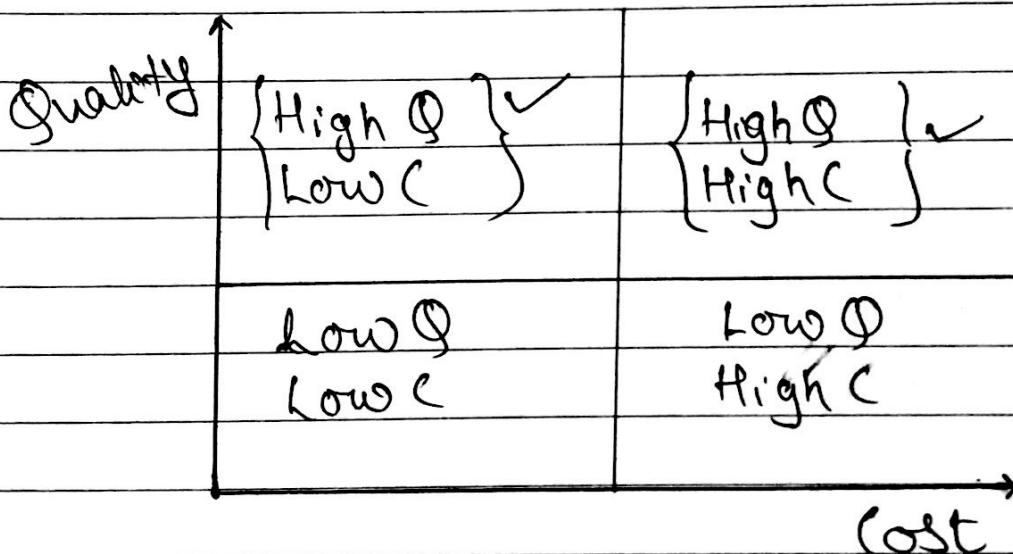 Quality
High Q
Low C
High Q
High C
Low Q
Low C
Low Q
High C
Cost